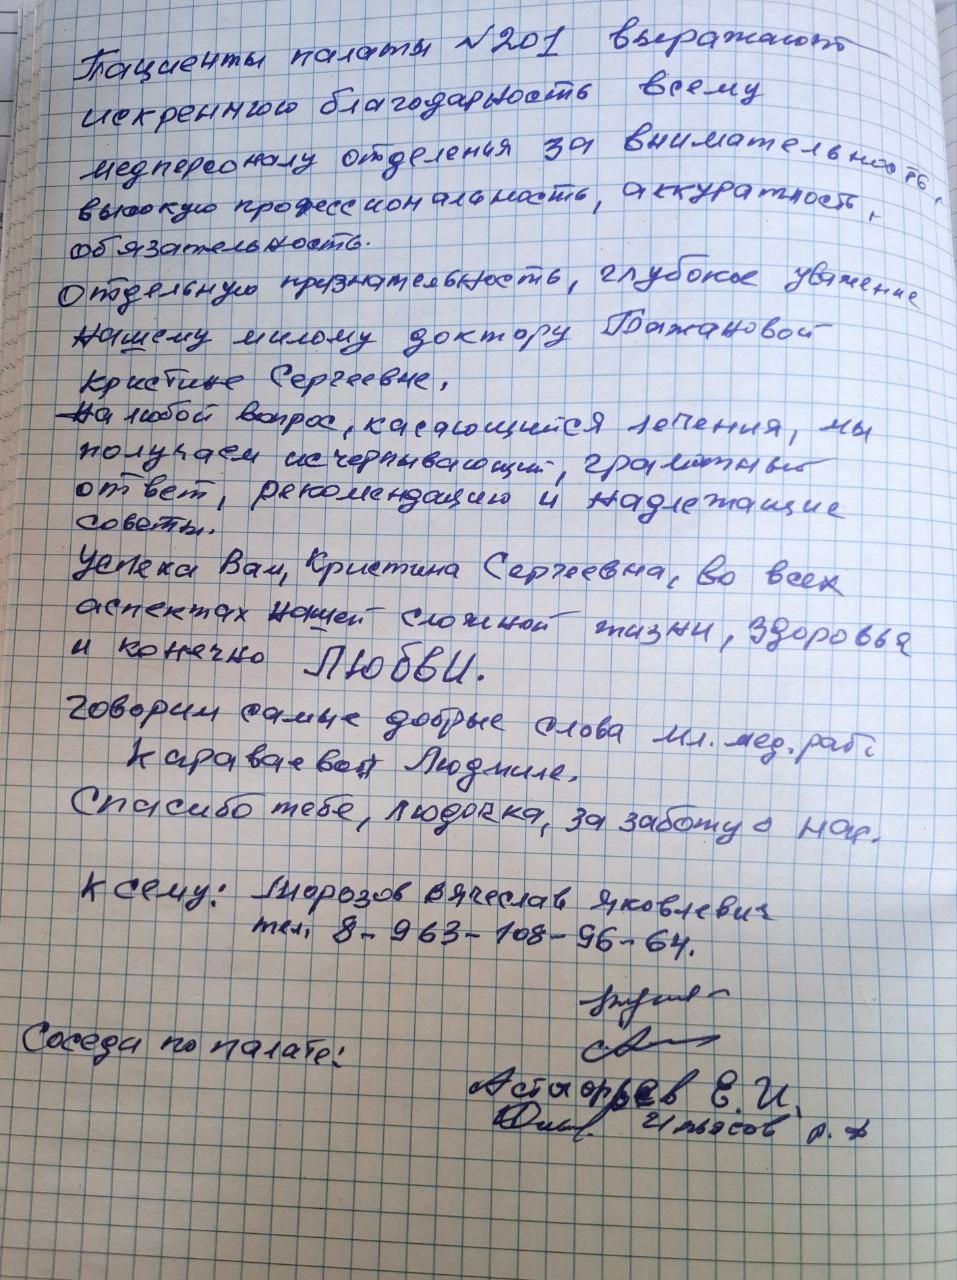 Пациенты палаты №201 выражают
искреннюю благодарность всему
медперсоналу отделения за внимательность,
высокую профессиональность, аккуратность,
обязательность.
Отдельную признательность, глубокое уважение
нашему милому доктору Бажановой
Кристине Сергеевне.
На любой вопрос, касающийся лечения, мы
получаем исчерпывающий, грамотный
ответ, рекомендацию и надлежащие
советы.
Успеха Вам, Кристина Сергеевна, во всех
аспектах нашей сложной жизни, здоровья
и конечно ЛЮБВИ.
Говорим самые добрые слова мл. мед. раб.
Караваевой Людмиле.
Спасибо тебе, Людочка, за заботу о нас.
К сему: Морозов Вячеслав Яковлевич
тел. 8-963-108-96-64.
Соседи по палате:
Е. И.
Ильясов